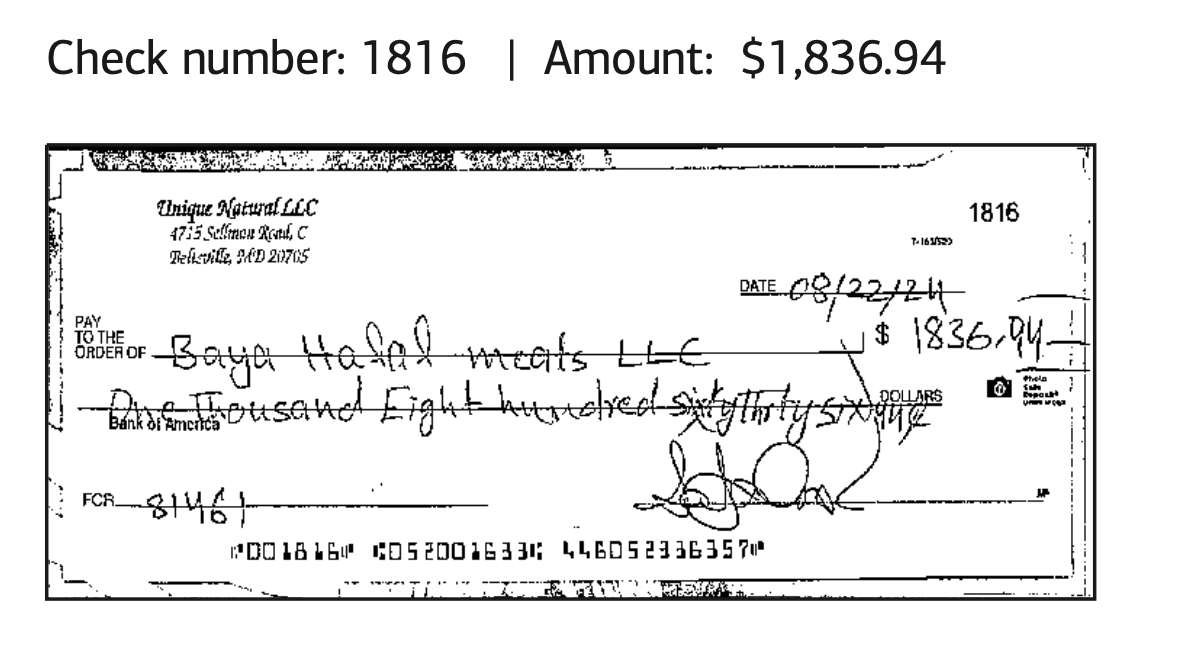 Check number: 1816 | Amount: $1,836.94
Unique Natural LLC
4715 Sellman Road, C
Beltsville, MD 20705
1816
7-163/520
DATE 08/22/24
PAY
TO THE
ORDER OF Baya Halal meats LLC $ 1836.94
One Thousand Eight hundred sixty Thirty six 94¢ DOLLARS
Photo
Safe
Deposit®
Bank of America
FOR 81461
MP
⑈001816⑈ ⑆052001633⑆ 446052336357⑈